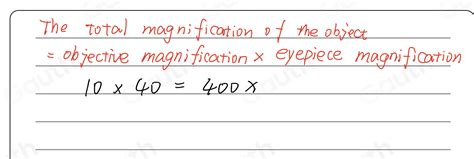 The total magnification of the object
= objective magnification × eyepiece magnification
10 × 40 = 400×